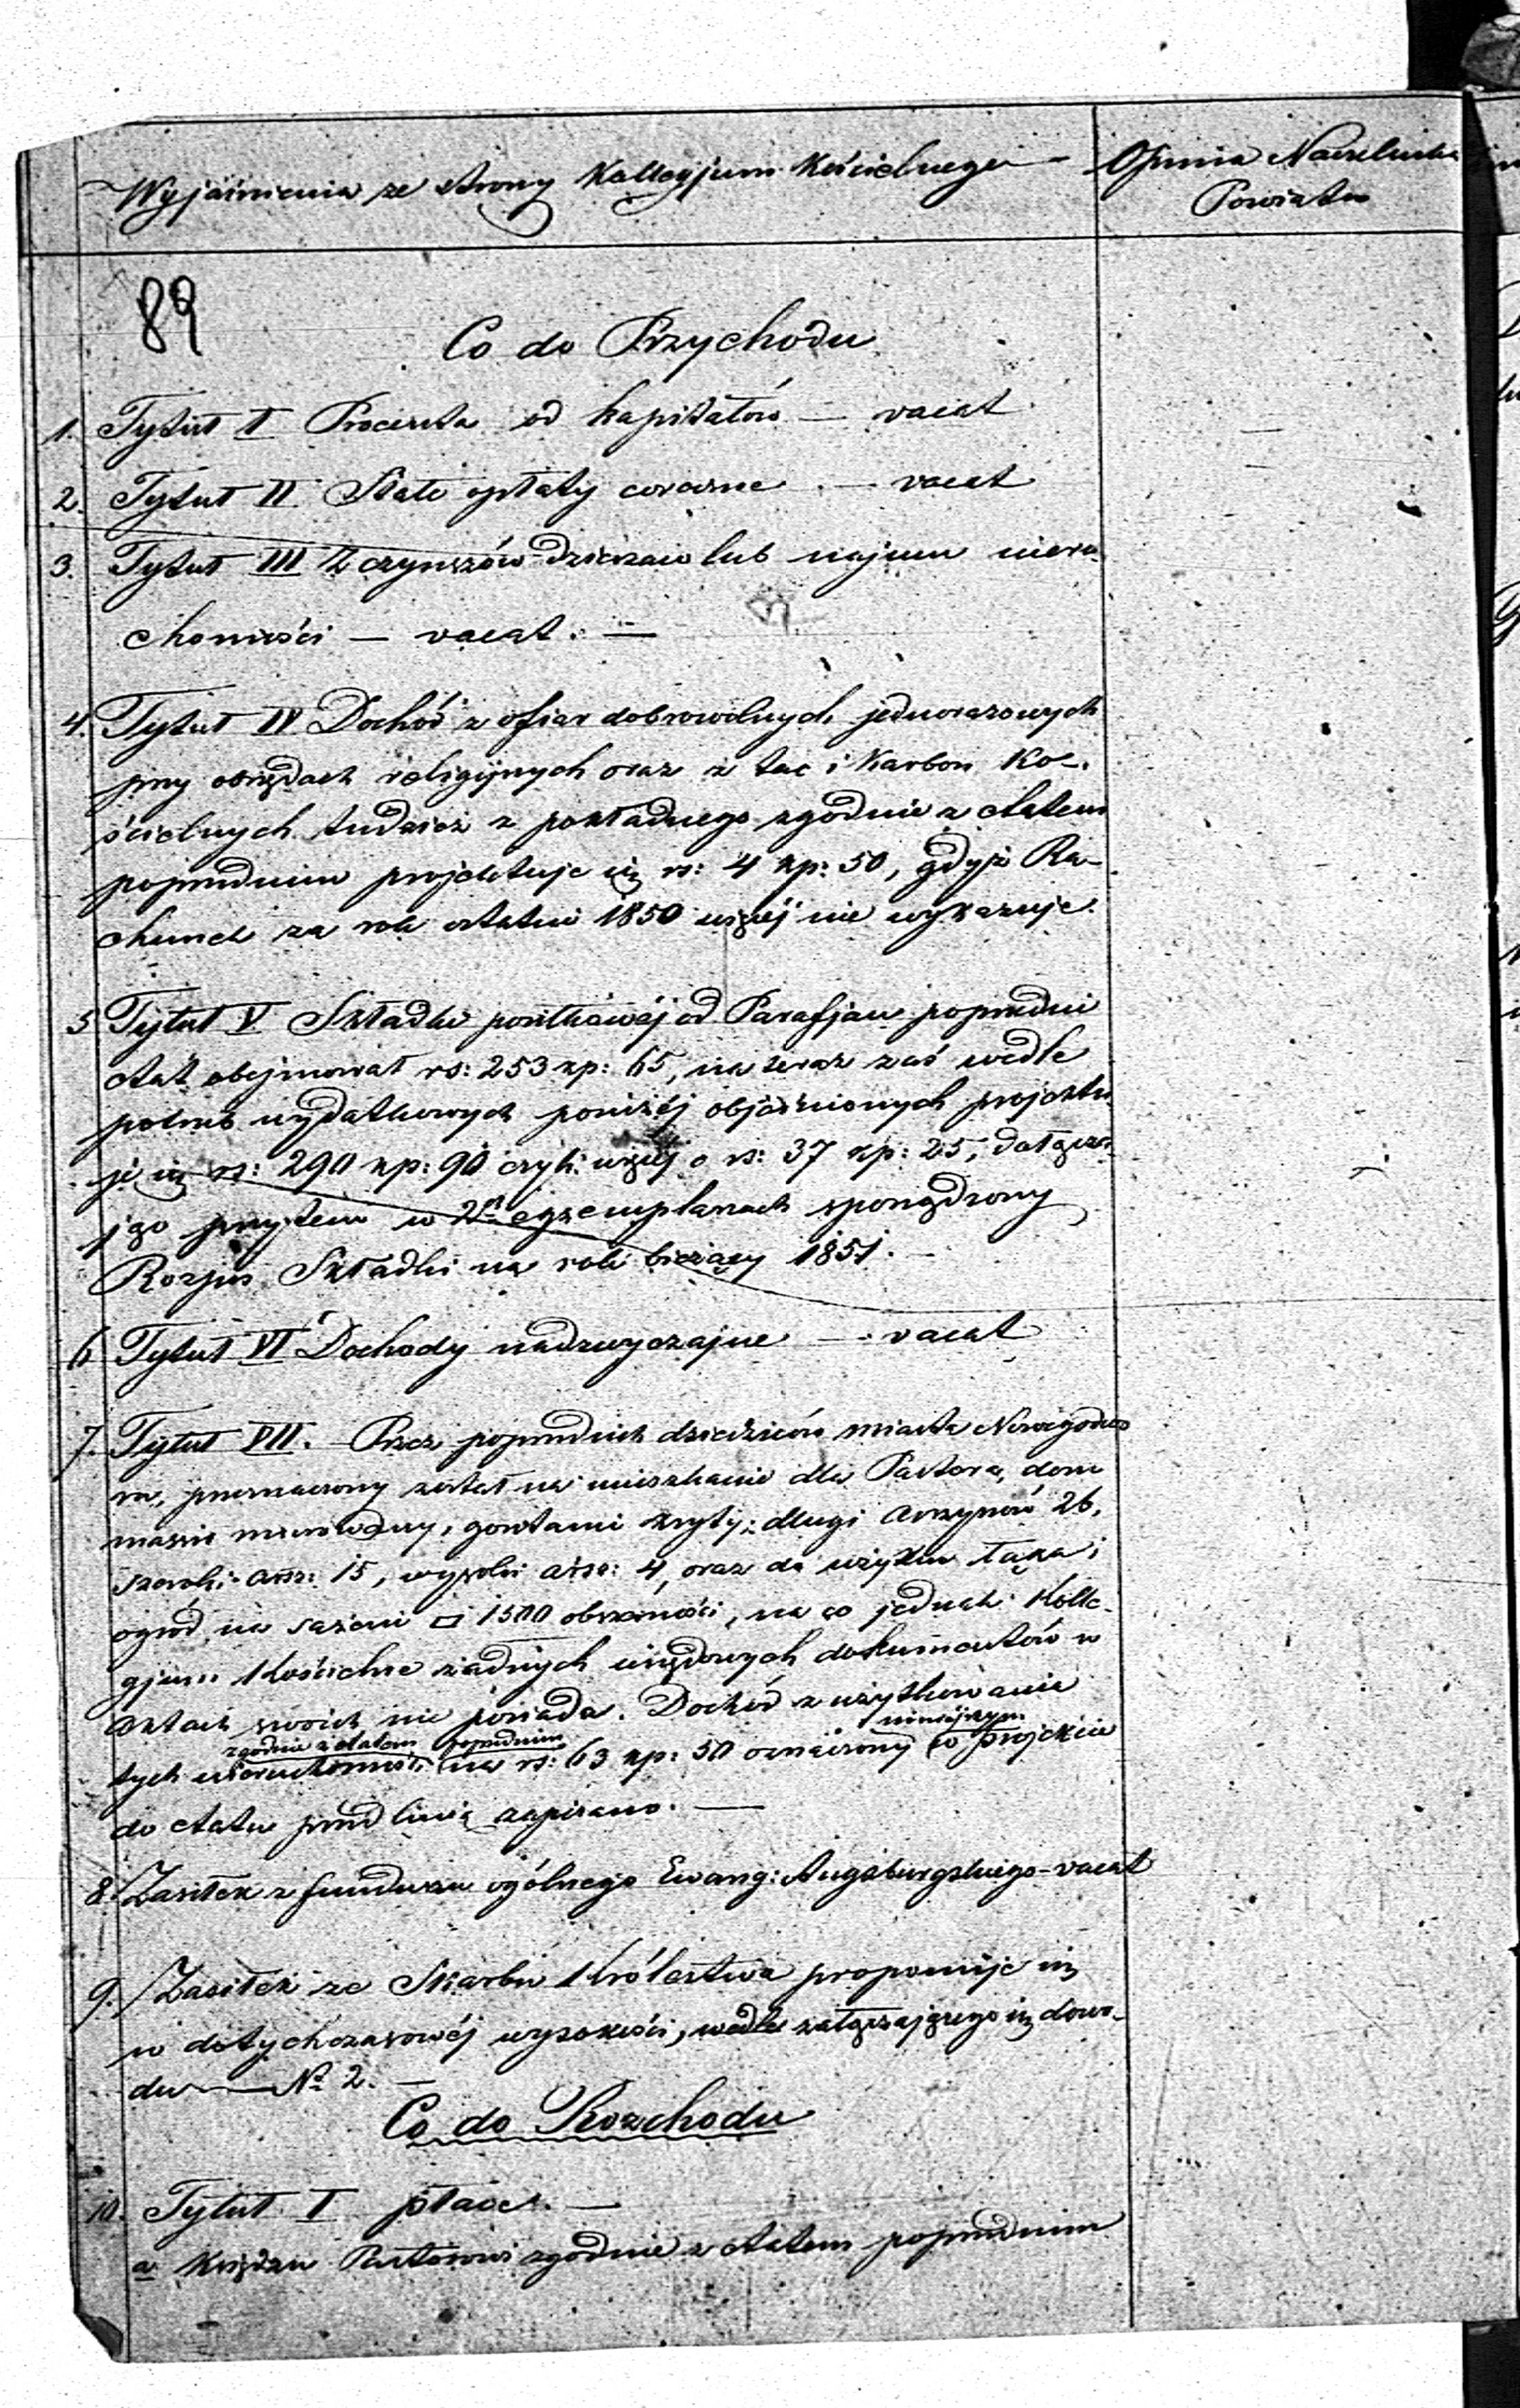 Wyjaśnienia ze strony Kollegijum Kościelnego
Opinia Naczelnika
Powiatu
89
Co do Przychodu
1. Tytuł I Procenta od kapitałów — vacat
2. Tytuł II Stałe opłaty coroczne — vacat
3. Tytuł III Z czynszów dzierżaw lub najmu nieru-
chomości — vacat. —
4. Tytuł IV Dochód z ofiar dobrowolnych jednorazowych
przy obrzędach religijnych oraz z tac i Karbon Ko-
ścielnych tudzież z pokładnego zgodnie z etatem
poprzednim projektuje się rs: 4 kp: 50, gdyż Ra-
chunek za rok ostatni 1850 więcej nie wykazuje.
5 Tytuł V Składki posiłkowéj od Parafjan poprzedni
etat obejmował rs: 253 kp: 65, na teraz zaś wedle
potrzeb wydatkowych poniżéj objaśnionych projektu-
je się rs: 290 kp: 90 czyli więcéj o rs: 37 kp: 25, dołącza-
jąc przytem w 2ch egzemplarzach sporządzony
Rozpis Składki na rok bieżący 1851. —
6 Tytuł VI Dochody nadzwyczajne — vacat
7. Tytuł VII. Przez poprzednich dziedziców miasta Nowegodwo
ru, przeznaczony został na mieszkanie dla Pastora, dom
massiv murowany, gontami kryty; długi arszynów 26,
szeroki arsz: 15, wysoki arsz: 4, oraz do użytku łąka i
ogród na sażeni □ 1500 obszerności, na co jednak Kolle-
gjum Kościelne żadnych urzędowych dokumentów w
Aktach swoich nie posiada. Dochód z użytkowania
zgodnie z etatem poprzednim niniejszym
tych nieruchomości na rs: 63 kp: 50 oznaczony w projekcie
do etatu przed linią zapisano. —
8. Zasiłek z funduszu ogólnego Ewang: Augsburgskiego – vacat
9. Zasiłek ze Skarbu Królestwa proponuje się
w dotychczasowéj wysokości, wedle załączającego się dowo-
du — No 2. —
Co do Rozchodu
10. Tytuł I płace. —
a Księdzu Pastorowi zgodnie z etatem poprzednim